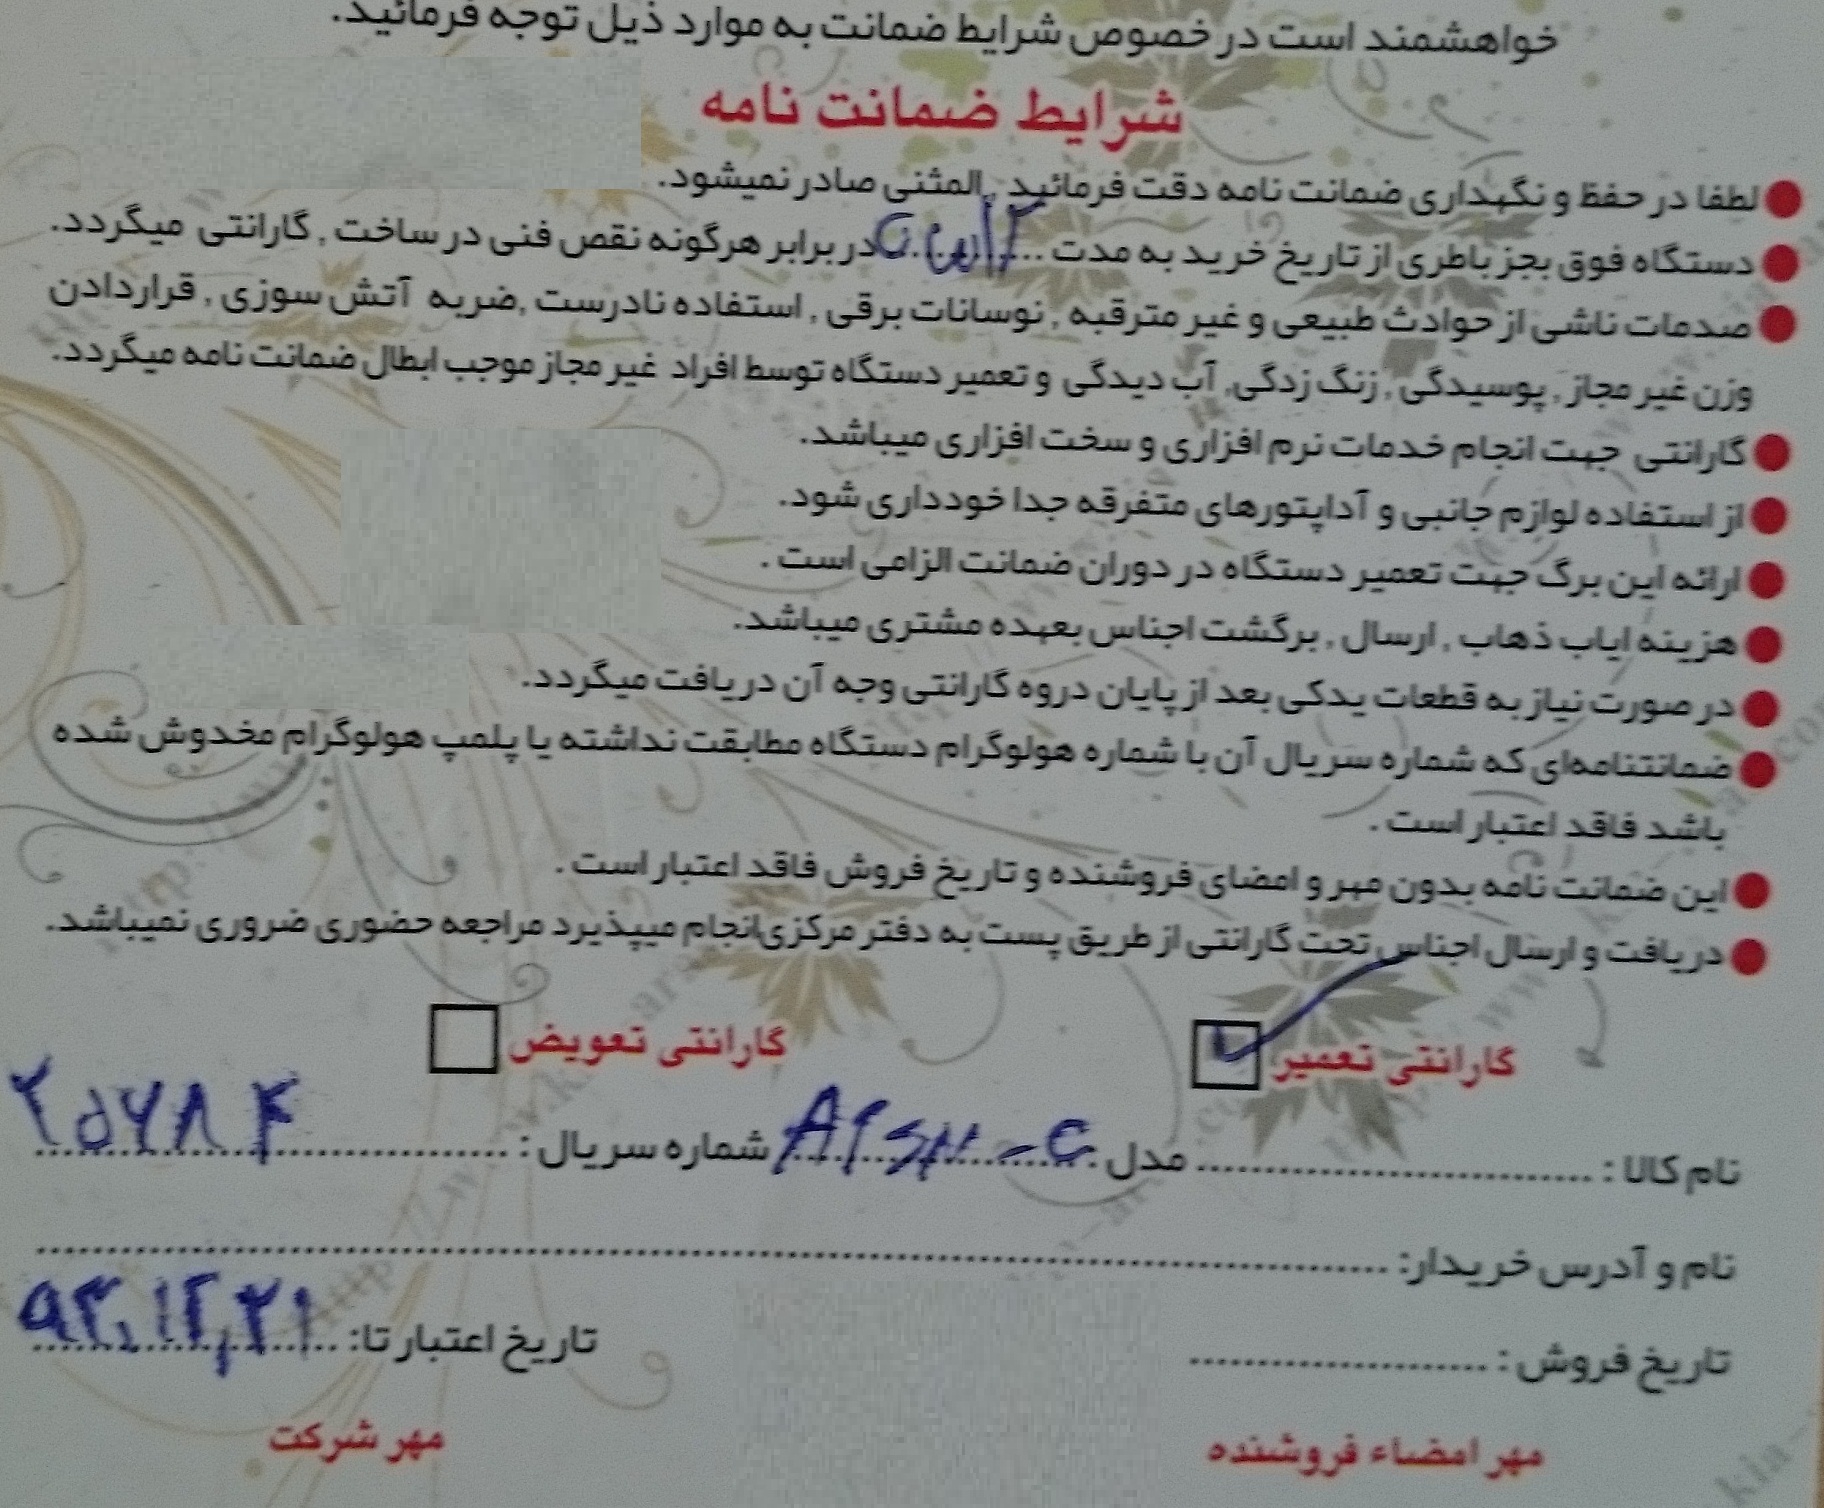 خواهشمند است در خصوص شرایط ضمانت به موارد ذیل توجه فرمائید.
شرایط ضمانت نامه
لطفا در حفظ و نگهداری ضمانت نامه دقت فرمائید , المثنی صادر نمیشود.
دستگاه فوق بجز باطری از تاریخ خرید به مدت ........ در برابر هرگونه نقص فنی در ساخت , گارانتی میگردد.
صدمات ناشی از حوادث طبیعی و غیر مترقبه , نوسانات برقی , استفاده نادرست ,ضربه آتش سوزی , قراردادن
وزن غیر مجاز , پوسیدگی , زنگ زدگی, آب دیدگی و تعمیر دستگاه توسط افراد غیر مجاز موجب ابطال ضمانت نامه میگردد.
گارانتی جهت انجام خدمات نرم افزاری و سخت افزاری میباشد.
از استفاده لوازم جانبی و آداپتورهای متفرقه جدا خودداری شود.
ارائه این برگ جهت تعمیر دستگاه در دوران ضمانت الزامی است .
هزینه ایاب ذهاب , ارسال , برگشت اجناس بعهده مشتری میباشد.
در صورت نیاز به قطعات یدکی بعد از پایان دروه گارانتی وجه آن دریافت میگردد.
ضمانتنامه‌ای که شماره سریال آن با شماره هولوگرام دستگاه مطابقت نداشته یا پلمپ هولوگرام مخدوش شده
باشد فاقد اعتبار است .
این ضمانت نامه بدون مهر و امضای فروشنده و تاریخ فروش فاقد اعتبار است .
دریافت و ارسال اجناس تحت گارانتی از طریق پست به دفتر مرکزی انجام میپذیرد مراجعه حضوری ضروری نمیباشد.
گارانتی تعمیر گارانتی تعویض
نام کالا : ........ مدل ........ شماره سریال : ۲۵۷۸۴
نام و آدرس خریدار: ........
تاریخ فروش : ........ تاریخ اعتبار تا: ۹۳,۱۲,۲۱
مهر امضاء فروشنده مهر شرکت